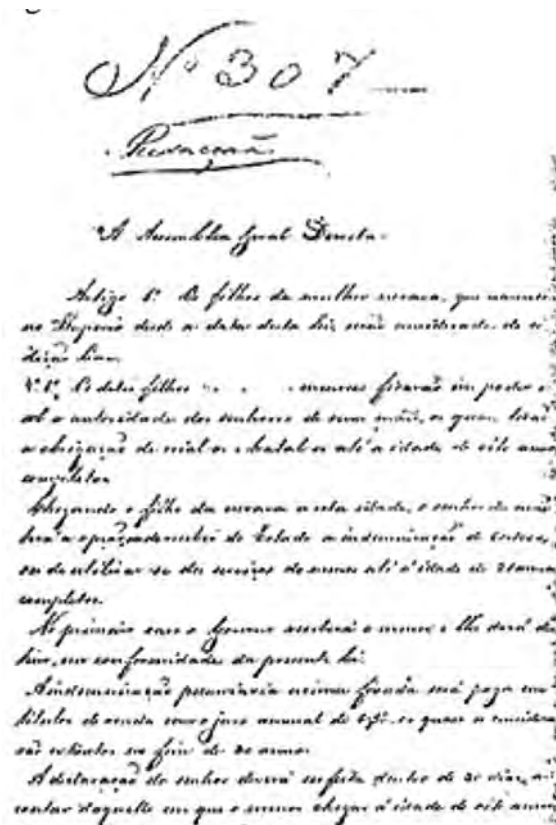 Nº 307
Redacçaõ
A Assembléa Geral Decreta:
Artigo 1º Os filhos da mulher escrava, que nascerem
no Imperio desde a data desta lei, serão considerados de con
dição livre.
§ 1º Os ditos filhos menores ficarão em poder e
sob a autoridade dos senhores de suas mães, os quaes terão
a obrigação de crial-os e tratal-os até a idade de oito annos
completos.
Chegando o filho da escrava a esta idade, o senhor da mãe
terá a opção de receber do Estado a indemnisação de
ou de utilisar-se dos serviços do menor até a idade de 21 annos
completos.
No primeiro caso o Governo receberá o menor, e lhe dará des
tino, em conformidade da presente lei.
A indemnisação pecuniaria acima fixada será paga em
titulos de renda com o juro annual de 6%, os quaes se considera
rão extinctos no fim de 30 annos.
A declaração do senhor deverá ser feita dentro de 30 dias, a
contar daquelle em que o menor chegar á idade de oito annos